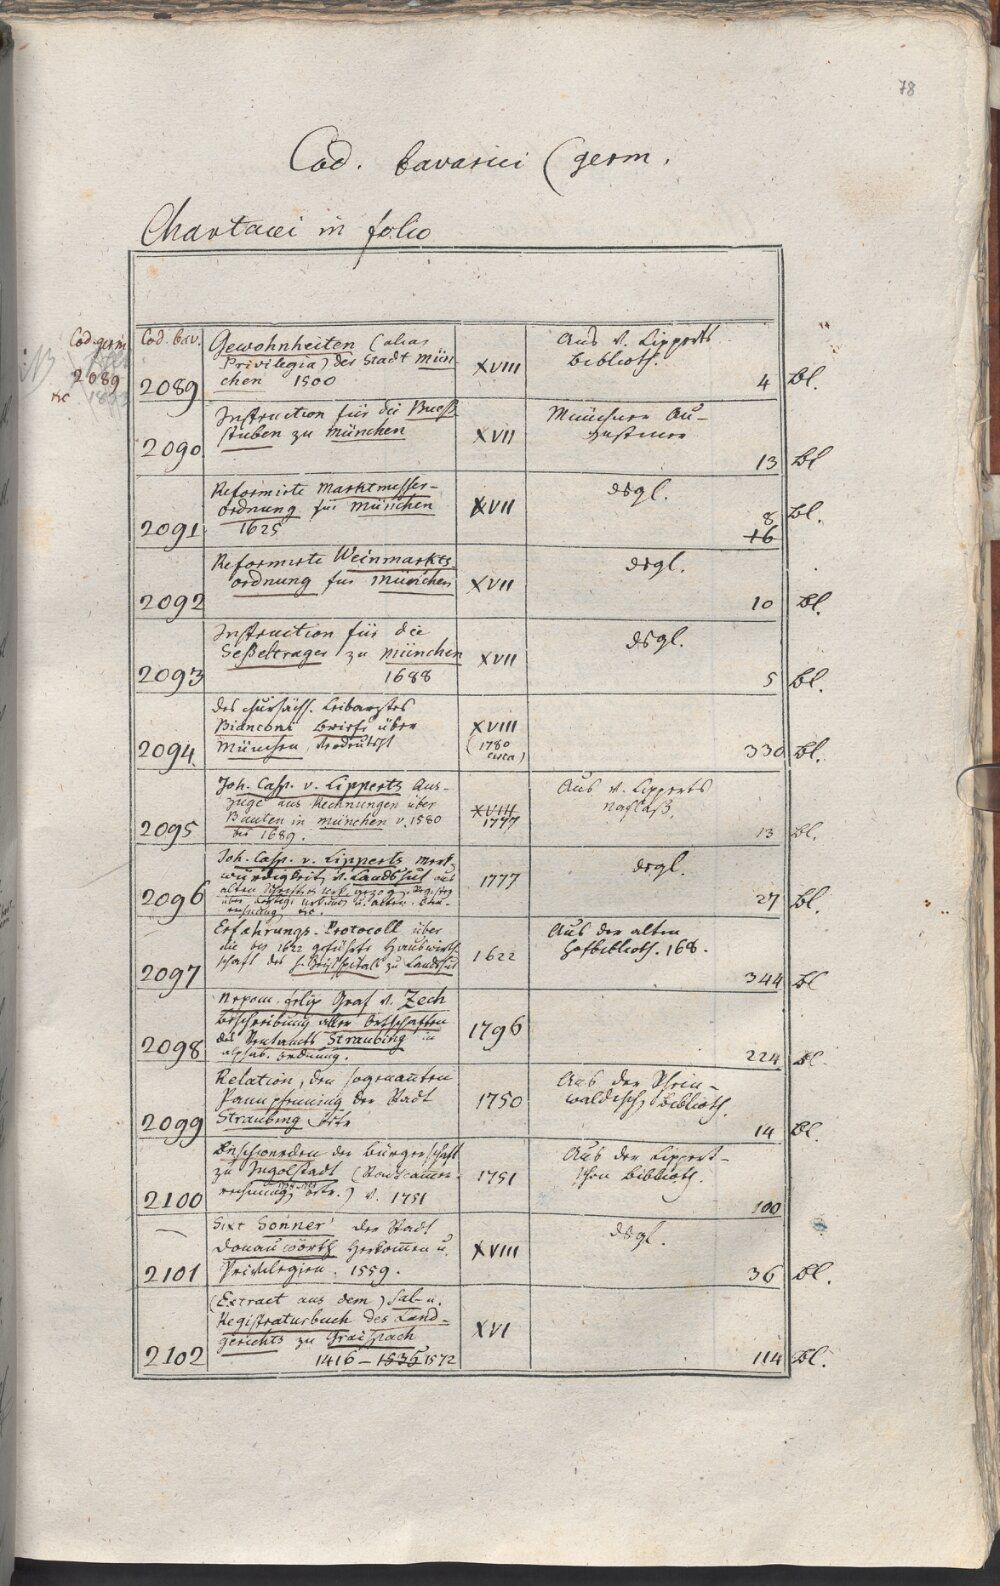 78
Cod. bavarici (germ.
Chartacei in folio
Cod. germ.
2089
Cod. bav.
2089
Gewohnheiten (alias
Privilegia) der Stadt Mün-
chen 1500
XVIII
Aus v. Lipperts
Biblioth.
4 Bl.
2090
Instruction für die
Stuben zu München
XVII
Münchner Au-
gustiner
13 Bl
2091
Reformirte Marktmesser-
ordnung für München
1625
XVII
dsgl.
8 Bl.
16
2092
Reformirte Weinmarkts
ordnung für München
XVII
dsgl.
10 Bl.
2093
Instruction für die
Seßeltrager zu München
1688
XVII
dsgl.
5 Bl.
2094
des chursächs. Leibarztes
Bianconi Briefe über
München, verdeutscht
XVIII
(1780
circa)
330 Bl.
2095
Joh. Casp. v. Lipperts Aus-
züge aus Rechnungen über
Bauten in München v. 1580
bis 1689.
XVIII
1777
Aus v. Lipperts
Nachlaß.
13 Bl.
2096
Joh. Casp. v. Lipperts Merk
würdigkeit. v. Landshut aus
alten
1777
dsgl.
27 Bl.
2097
Erfahrungs-Protocoll über
die bis 1622 geführte Hauswirth
schaft des h. Geistspitals zu Landshut
1622
Aus der alten
Hofbiblioth. 168.
344 Bl
2098
Nepom. Felix Graf v. Zech
Beschreibung aller Ortschaften
des Rentamts Straubing in
alphab. Ordnung.
1796
224 Bl
2099
Relation, den sogenañten
Pannpfenning der Stadt
Straubing betr.
1750
Aus der
waldisch. Biblioth.
14 Bl.
2100
Beschwerden der Bürgerschaft
zu Ingolstadt (Stadtcamer-
rechnung betr.) v. 1751
1751
Aus der Lippert-
schen Biblioth.
100
2101
Sixt Sonner' der Stadt
Donauwörth Herkom̄en u.
Privilegien. 1559.
XVIII
dsgl.
36 Bl.
2102
(Extract aus dem) Sal- u.
Registraturbuch des Land-
gerichts zu Graispach
1416 – 1535 1572
XVI
114 Bl.